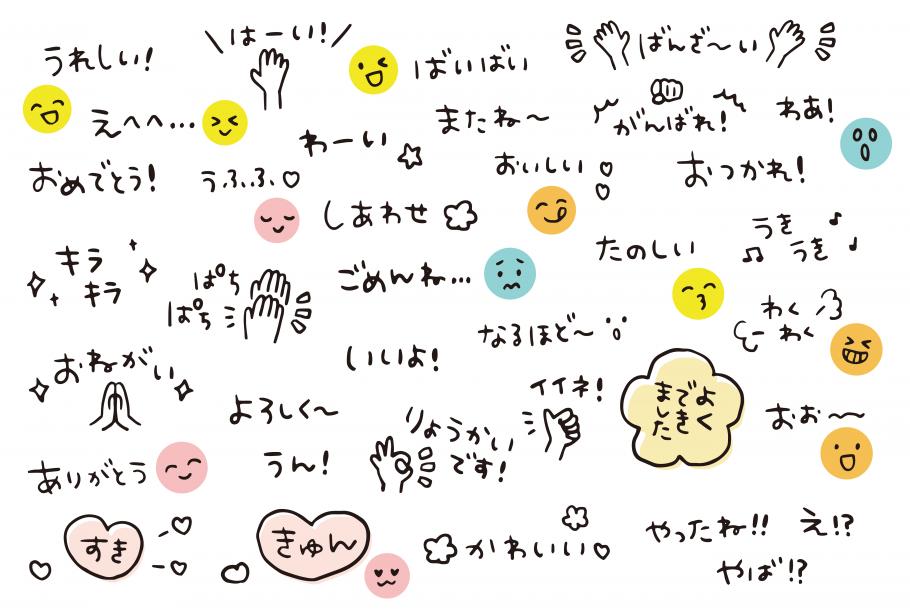 うれしい！
はーい！
ばいばい
ばんざ〜い
えへへ…
わーい
またね〜
がんばれ！
わあ！
おめでとう！
うふふ♡
しあわせ
おいしい
おつかれ！
キラ
キラ
ぱち
ぱち
ごめんね…
たのしい
うき
うき
おねがい
いいよ！
なるほど〜
わく
わく
よろしく〜
りょうかい
です！
イイネ！
よく
できました
おぉ〜
ありがとう
うん！
すき
きゅん
かわいい♡
やったね！！
え！？
やば！？